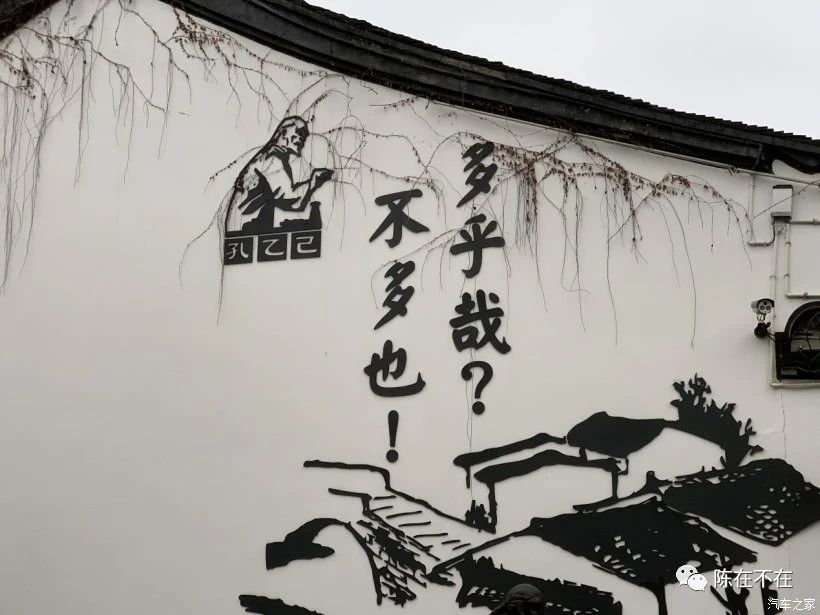 多乎哉?
不多也!
孔乙己
陈在不在
汽车之家